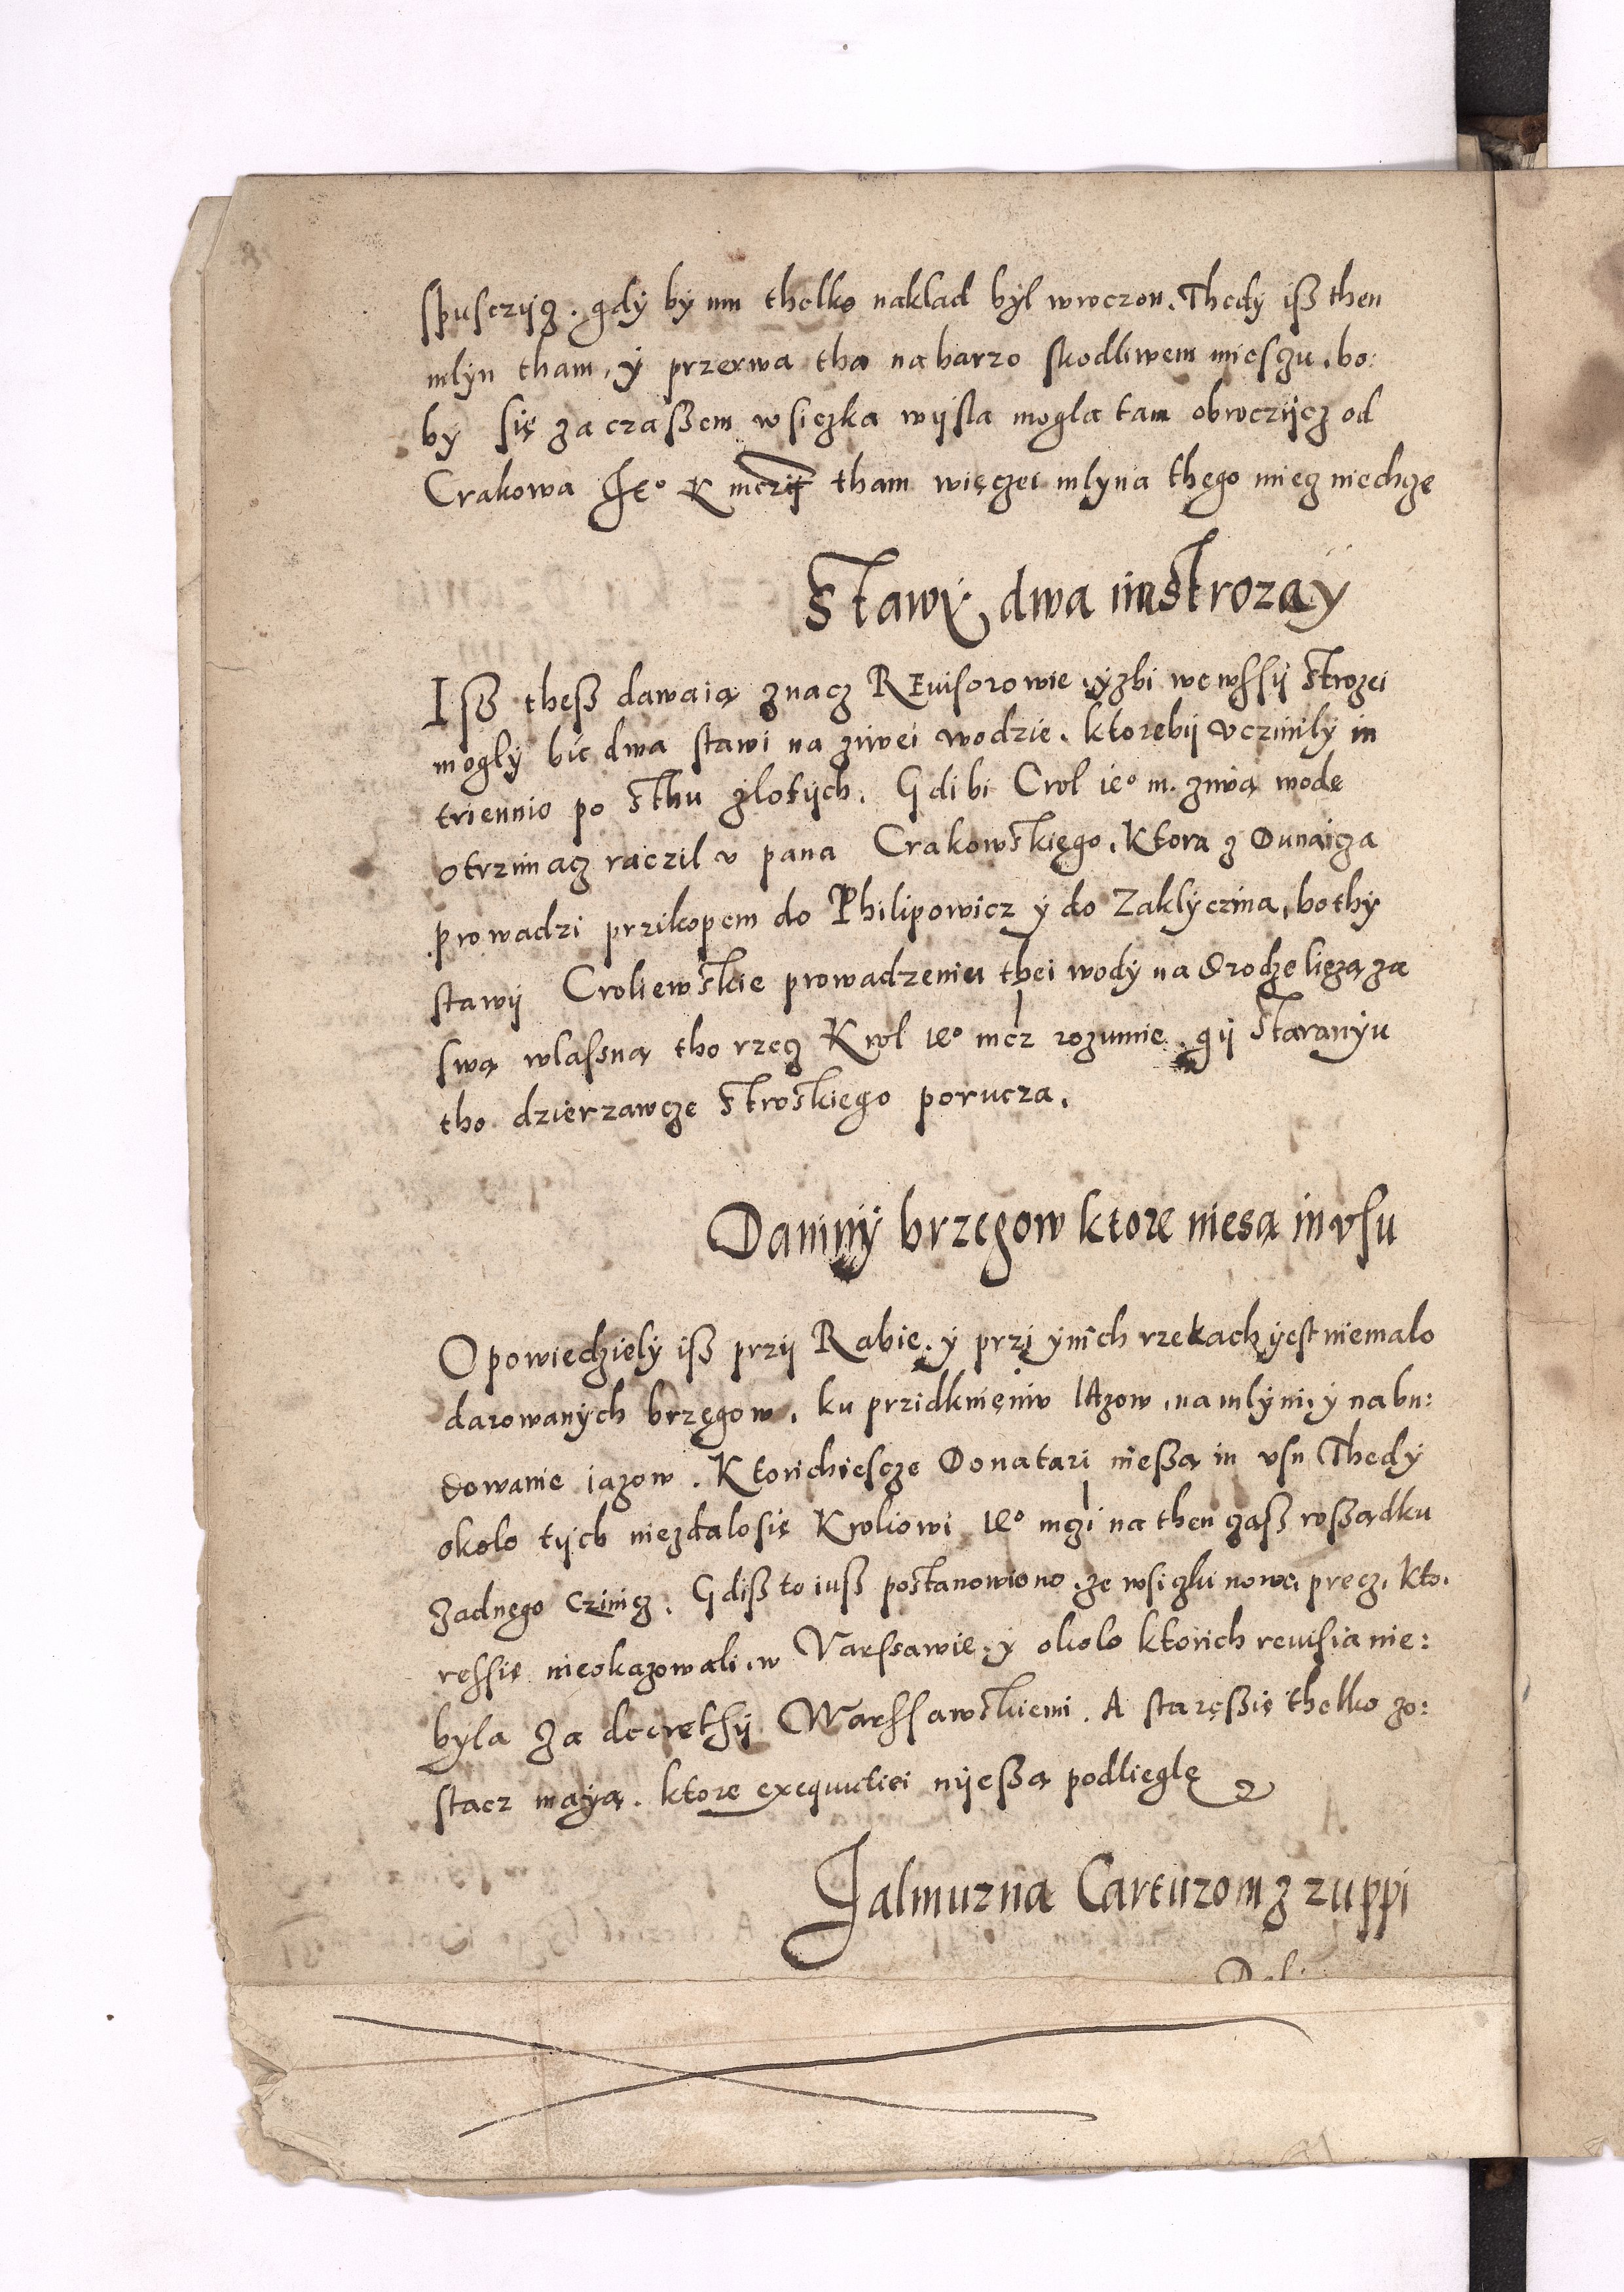 spusczijcz. gdÿ bÿ mu tholko naklad bÿl wroczon. Thedÿ iß then
mlÿn tham, ÿ przerwa tha na barzo skodliwem miesczu, bo:
by się za czaßem wsiczka wijsla mogla tam obroczijcz od
Crakowa Je° K mczij tham więczei mlyna thego miecz niechcze
Stawÿ dwa in Strozay
Iß theß dawaią znacz Reuisorowie, ÿzbi we wssij Strozei
moglÿ bic dwa stawi na ziwei wodzie. ktorebij vczinilÿ in
triennio po Sthu zlotijch. Gdibi Crol ie° m. ziwą wode
otrzimacz raczil v pana Crakowskięgo. Ktora z Dunaicza
prowadzi przikopem do Philipowicz ÿ do Zaklÿczina, bo thÿ
stawij Croliewskie prowadzeniu thei wodÿ na drodze liezą za
swą wlasną tho rzecz Krol ie° mcz rozumie. ij Staranÿu
tho dzierzawcze Stroskiego porucza.
Daninÿ brzegow ktore niesą in vsu
Opowiedzielÿ iß przij Rabie. ÿ przi ÿnich rzekach ÿest niemalo
darowanÿch brzęgow. ku przidknięniw Iazow, na mlÿni, ÿ na bu:
dowanie iazow. Ktorich iescze Donatari nießą in vsu Thedÿ
okolo tijch niezdalosię Kroliowi ie° mczi na then czaß rossadku
zadnęgo czinicz. Gdiß to iuß postanowiono, ze wsiczki nowe, precz, kto.
ressię nieokazowali, w Varssawie, ÿ okolo ktorich reuisia nie:
byla za decrethij Warssawskiemi. A staręßię tholko zo:
stacz maÿą. ktore exequutiei nijeßą podlieglę
Jalmuzna Cartuzom z zuppi